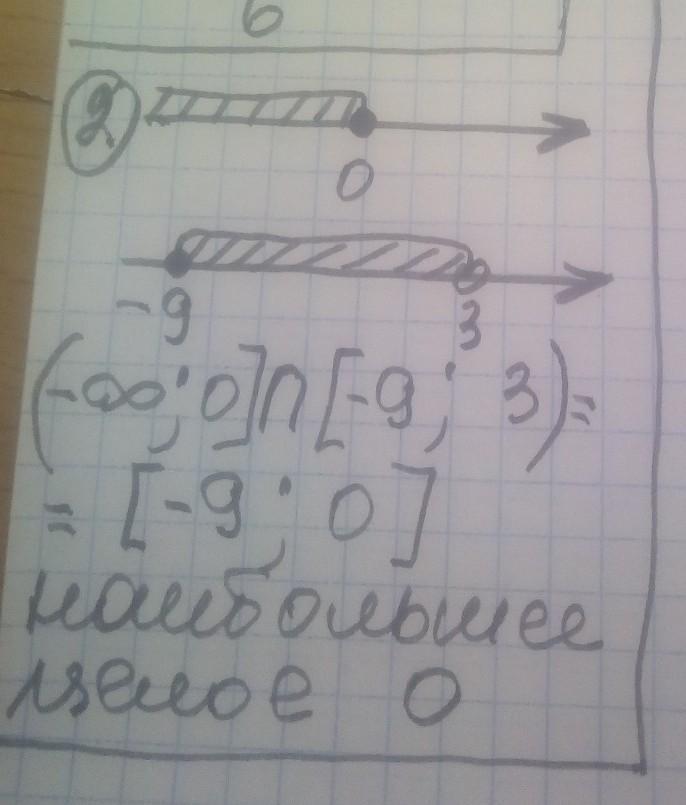 6
2
0
-9 3
(-∞; 0]∩[-9; 3)=
= [-9; 0]
наибольшее
целое 0